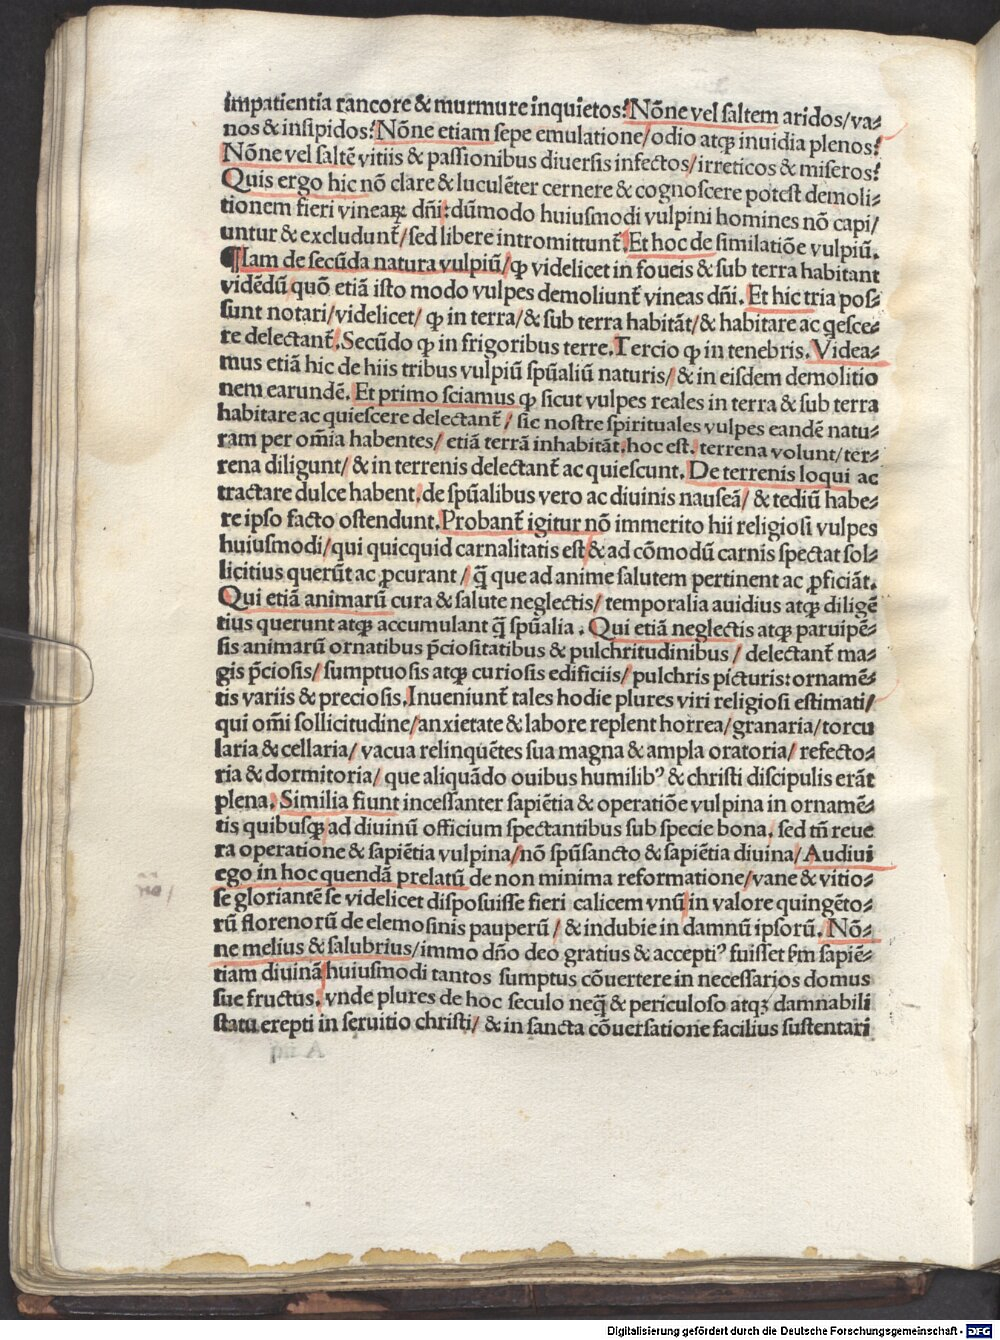 impatientia rancore & murmure inquietos? Nōne vel saltem aridos/va⸗
nos & insipidos? Nōne etiam sepe emulatione/odio atqꝫ inuidia plenos?
Nōne vel saltē vitiis & passionibus diuersis infectos/irreticos & miseros?
Quis ergo hic nō clare & luculēter cernere & cognoscere potest demoli⸗
tionem fieri vineaꝝ dn̄i: dūmodo huiusmodi vulpini homines nō capi/
untur & excludunt̄/sed libere intromittunt̄. Et hoc de similatiōe vulpiū.
¶Iam de secūda natura vulpiū/ꝙ videlicet in foueis & sub terra habitant
vidēdū quō etiā isto modo vulpes demoliunt̄ vineas dn̄i. Et hic tria pos⸗
sunt notari/videlicet/ ꝙ in terra/& sub terra habitāt/& habitare ac q̇esce⸗
re delectant̄. Secūdo ꝙ in frigoribus terre. Tercio ꝙ in tenebris. Videa⸗
mus etiā hic de hiis tribus vulpiū sp̄ualiū naturis/& in eisdem demolitio
nem earundē. Et primo sciamus ꝙ sicut vulpes reales in terra & sub terra
habitare ac quiescere delectant̄/ sic nostre spirituales vulpes eandē natu⸗
ram per om̄ia habentes/ etiā terrā inhabitāt. hoc est. terrena volunt/ter⸗
rena diligunt/ & in terrenis delectant̄ ac quiescunt. De terrenis loqui ac
tractare dulce habent. de sp̄ualibus vero ac diuinis nauseā/ & tediū habe⸗
re ipso facto ostendunt. Probant̄ igitur nō immerito hii religiosi vulpes
huiusmodi/qui quicquid carnalitatis est & ad cōmodū carnis spectat sol⸗
licitius querūt ac ꝓcurant/ q̄ que ad anime salutem pertinent ac ꝓficiāt.
Qui etiā animarū cura & salute neglectis/ temporalia auidius atqꝫ diligē
tius querunt atqꝫ accumulant q̄ sp̄ualia. Qui etiā neglectis atqꝫ paruipē⸗
sis animarū ornatibus p̄ciositatibus & pulchritudinibus/ delectant̄ ma⸗
gis p̄ciosis/ sumptuosis atqꝫ curiosis edificiis/ pulchris picturis: ornamē⸗
tis variis & preciosis. Inueniunt̄ tales hodie plures viri religiosi estimati/
qui om̄i sollicitudine/anxietate & labore replent horrea/granaria/torcu
laria & cellaria/ vacua relinquētes sua magna & ampla oratoria/ refecto⸗
ria & dormitoria/ que aliquādo ouibus humilibꝰ & christi discipulis erāt
plena. Similia fiunt incessanter sapiētia & operatiōe vulpina in ornamē⸗
tis quibusqꝫ ad diuinū officium spectantibus sub specie bona. sed tn̄ reue
ra operatione & sapiētia vulpina/nō sp̄usancto & sapiētia diuina/ Audiui
ego in hoc quendā prelatū de non minima reformatione/vane & vitio⸗
se gloriantē se videlicet disposuisse fieri calicem vnū in valore quingēto⸗
rū florenorū de elemosinis pauperū/ & indubie in damnū ipsorū. Nō⸗
ne melius & salubrius/immo dn̄o deo gratius & acceptiꝰ fuisset ẜm sapiē⸗
tiam diuinā huiusmodi tantos sumptus cōuertere in necessarios domus
sue fructus. vnde plures de hoc seculo neq̄ & periculoso atqꝫ damnabili
statu erepti in seruitio christi/ & in sancta cōuersatione facilius sustentari
Digitalisierung gefördert durch die Deutsche Forschungsgemeinschaft - DFG